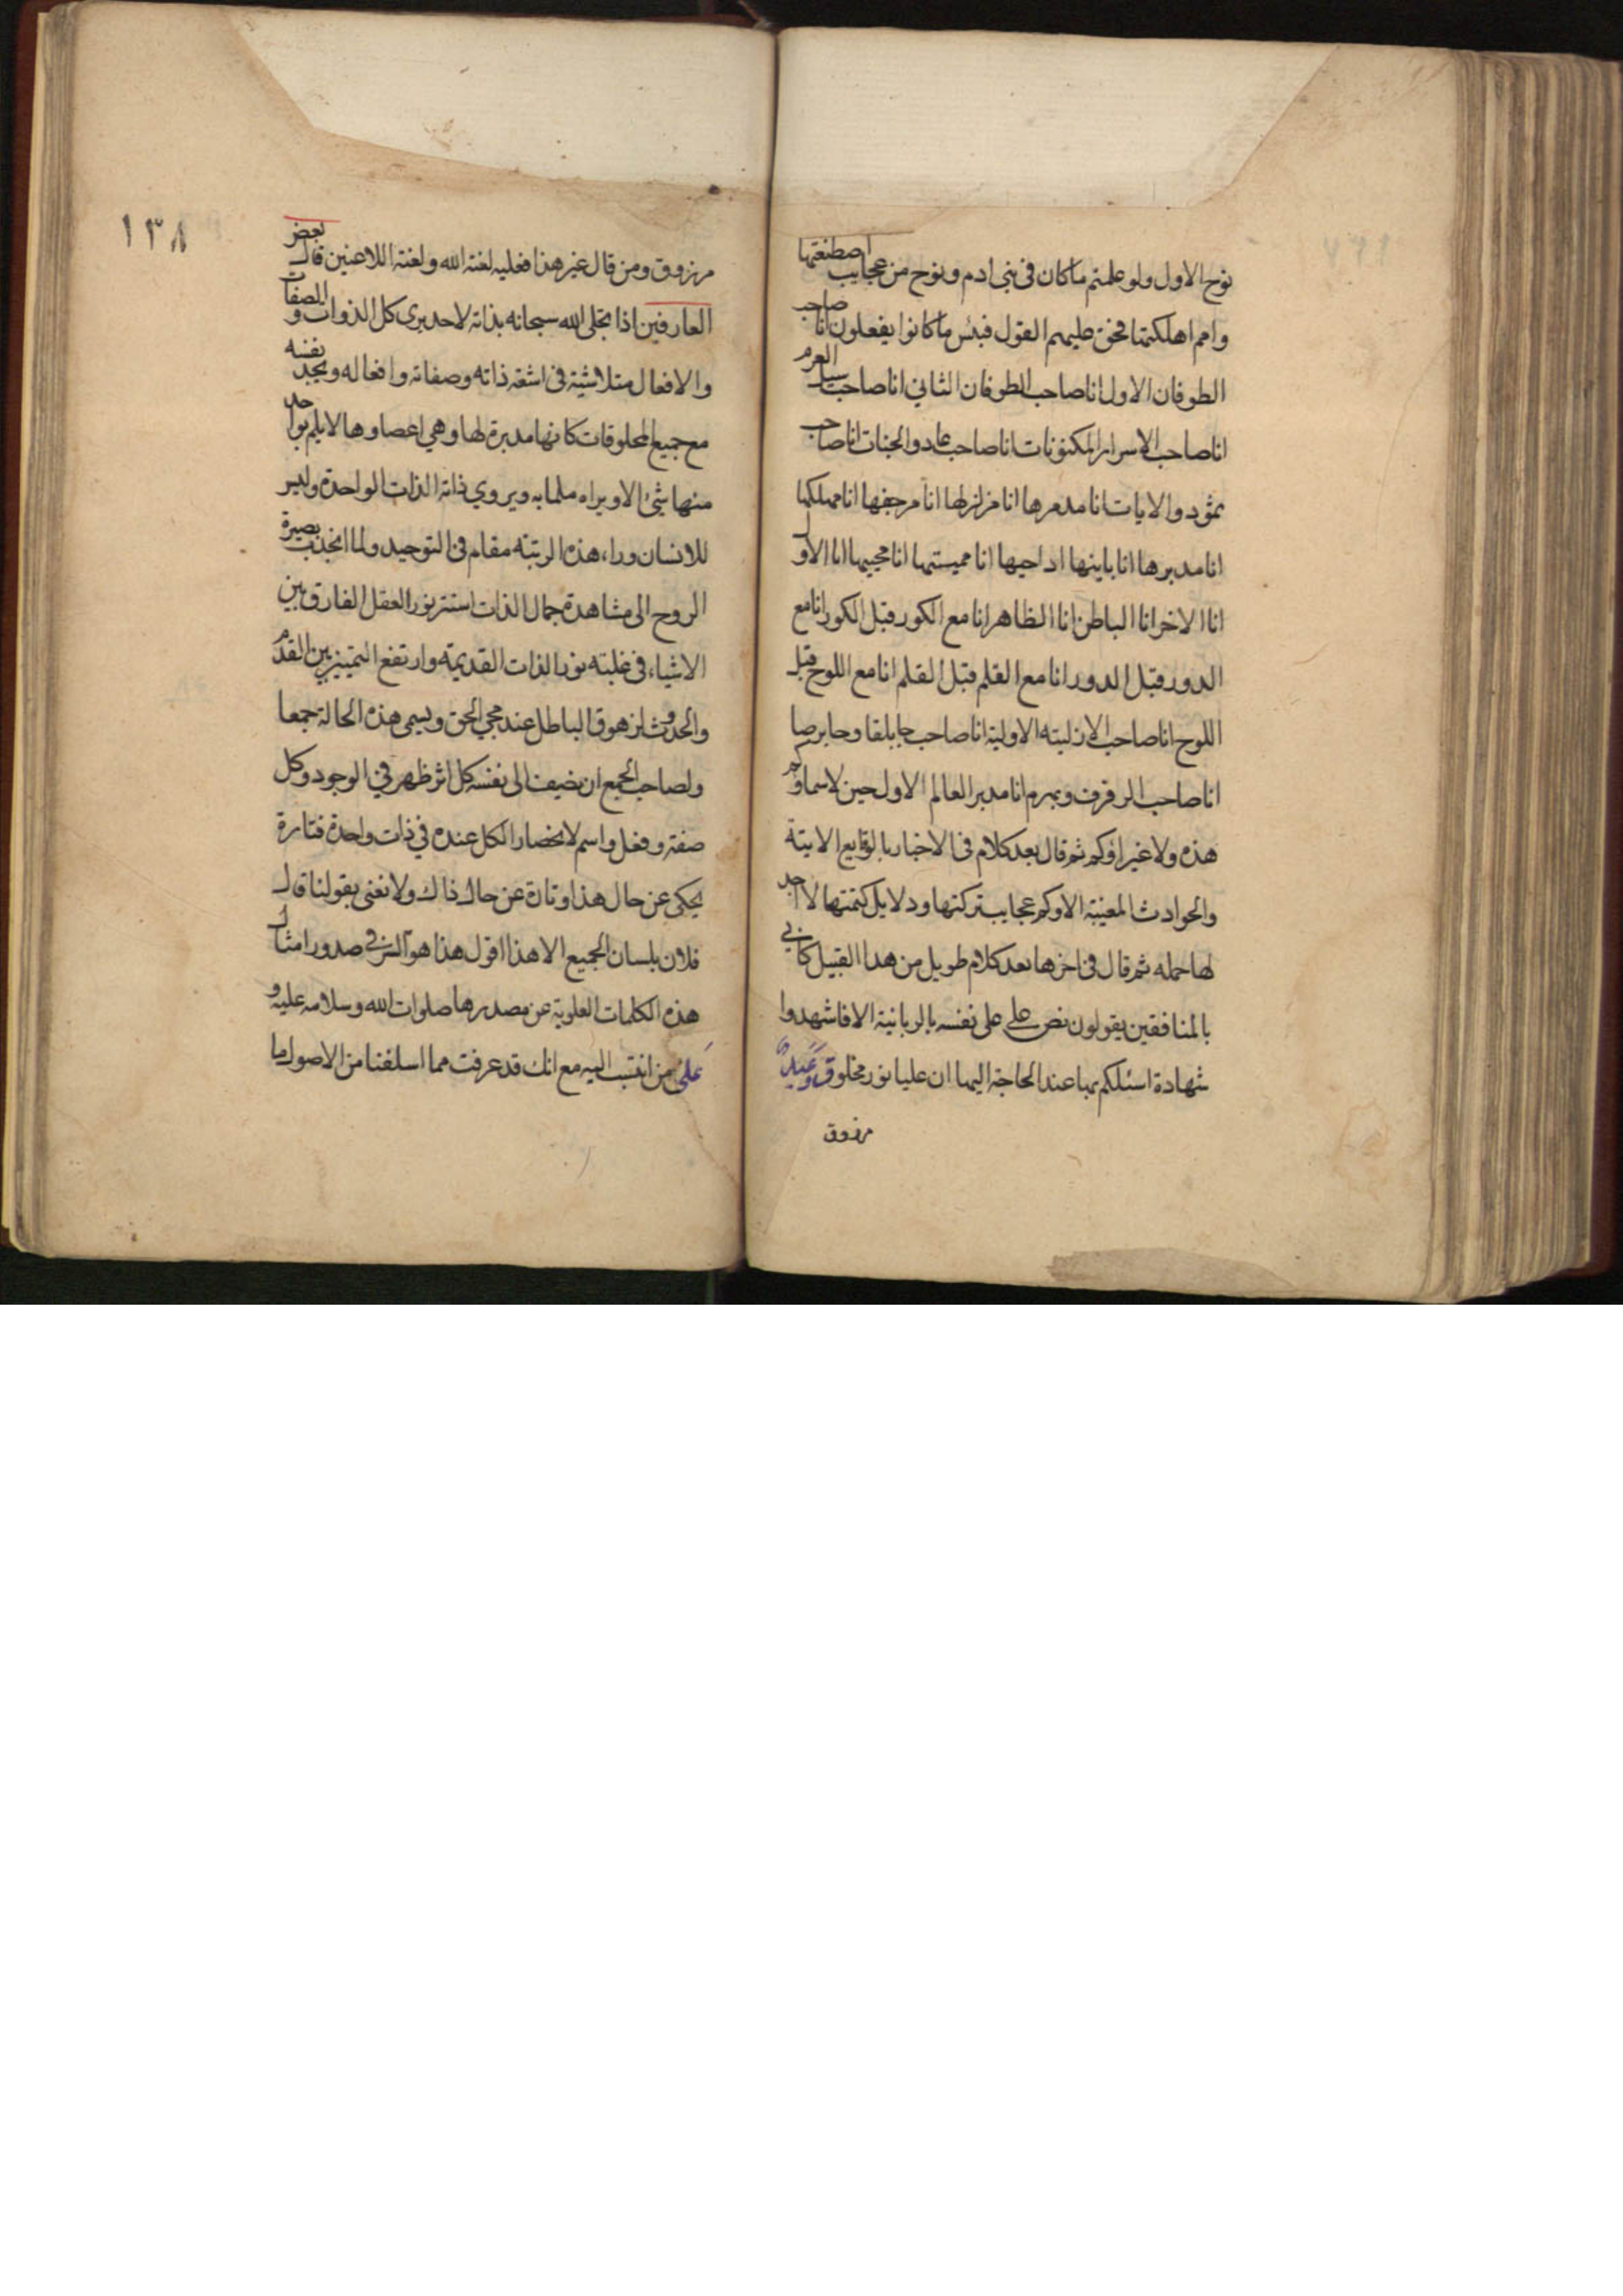 نوح الاول ولو علمتم ما كان في بني ادم ونوح من عجايب اصطنعتها
وامم اهلكتها فحق عليهم القول فبئس ما كانوا يفعلون انا صاحب
الطوفان الاول انا صاحب الطوفان الثاني انا صاحب سيل العرم
انا صاحب الاسرار المكنونات انا صاحب عاد والجنات انا صاحب
ثمود والايات انا مدمرها انا مزلزلها انا مرجفها انا مهلكها
انا مدبرها انا بانيها انا داحيها انا مميتها انا محييها انا الاول
انا الاخر انا الباطن انا الظاهر انا مع الكور قبل الكور انا مع
الدور قبل الدور انا مع القلم قبل القلم انا مع اللوح قبل
اللوح انا صاحب الازلية الاولية انا صاحب جابلقا وجابرصا
انا صاحب الرفرف وبهرم انا مدبر العالم الاول حين لا سماؤكم
هذه ولا غبراؤكم ثم قال بعد كلام في الاخبار بالوقايع الاتية
والحوادث المغيبة الا وكم عجايب تركتها ودلايل كتمتها لا اجد
لها حملة ثم قال في اخرها بعد كلام طويل من هذا القبيل كاني
بالمنافقين يقولون نص علي على نفسه بالربانية الا فاشهدوا
شهادة اسئلكم بها عند الحاجة اليها ان عليا نور مخلوق وعبد
مرزوق
١٣٨
مرزوق ومن قال غير هذا فعليه لعنة الله ولعنة اللاعنين قال بعض
العارفين اذا تجلى الله سبحانه بذاته لاحد يرى كل الذوات والصفات
والافعال متلاشية في اشعة ذاته وصفاته وافعاله ويجد نفسه
مع جميع المخلوقات كانها مدبرة لها وهي اعضاوها لا يلم بواحد
منها شئ الا ويراه ملما به ويرى ذاته الذات الواحدة وليس
للانسان وراء هذه الرتبة مقام في التوحيد ولما انجذب بصيرة
الروح الى مشاهدة جمال الذات استتر نور العقل الفارق بين
الاشياء في غلبة نور الذات القديمة وارتفع التمييز بين القدم
والحدوث لزهوق الباطل عند مجي الحق ويسمى هذه الحالة جمعا
ولصاحب الجمع ان يضيف الى نفسه كل اثر ظهر في الوجود وكل
صفة وفعل واسم لانحصار الكل عنده في ذات واحدة فتارة
يحكى عن حال هذا وتارة عن حال ذاك ولا نعنى بقولنا قال
فلان بلسان الجمع الا هذا اقول هذا هو السر في صدور امثال
هذه الكلمات العلوية عن مصدرها صلوات الله وسلامه عليه و
على من انتسب اليه مع انك قد عرفت مما اسلفنا من الاصول ما